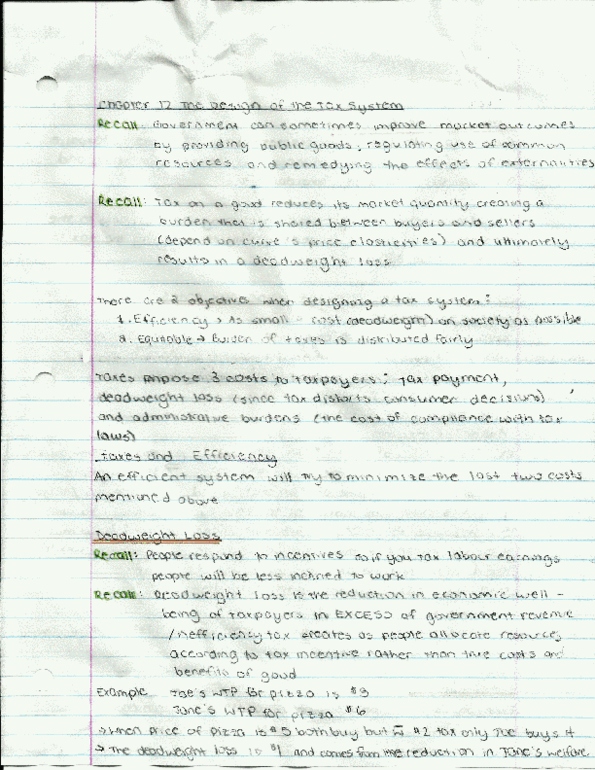 Chapter 12 The Design of the Tax System
Recall: Government can sometimes improve market outcomes
by providing public goods, regulating use of common
resources and remedying the effects of externalities
Recall: Tax on a good reduces its market quantity creating a
burden that is shared between buyers and sellers
(depend on curve's price elasticities) and ultimately
results in a deadweight loss
There are 2 objectives when designing a tax system:
1. Efficiency → As small cost (deadweight) on society as possible
2. Equitable → Burden of taxes is distributed fairly
Taxes impose 3 costs to taxpayers: tax payment,
deadweight loss (since tax distorts consumer decisions)
and administrative burdens (the cost of compliance with tax
laws)
Taxes and Efficiency
An efficient system will try to minimize the last two costs
mentioned above
Deadweight Loss
Recall: People respond to incentives so, if you tax labour earnings
people will be less inclined to work
Recall: Deadweight loss is the reduction in economic well-
being of taxpayers in EXCESS of government revenue
/inefficiency tax creates as people allocate resources
according to tax incentive rather than true costs and
benefits of good
Example Joe's WTP for pizza is $8
Jane's WTP for pizza $6
→ When price of pizza is $5 both buy but w $2 tax only Joe buys it
→ The deadweight loss is $1 and comes from the reduction in Jane's welfare